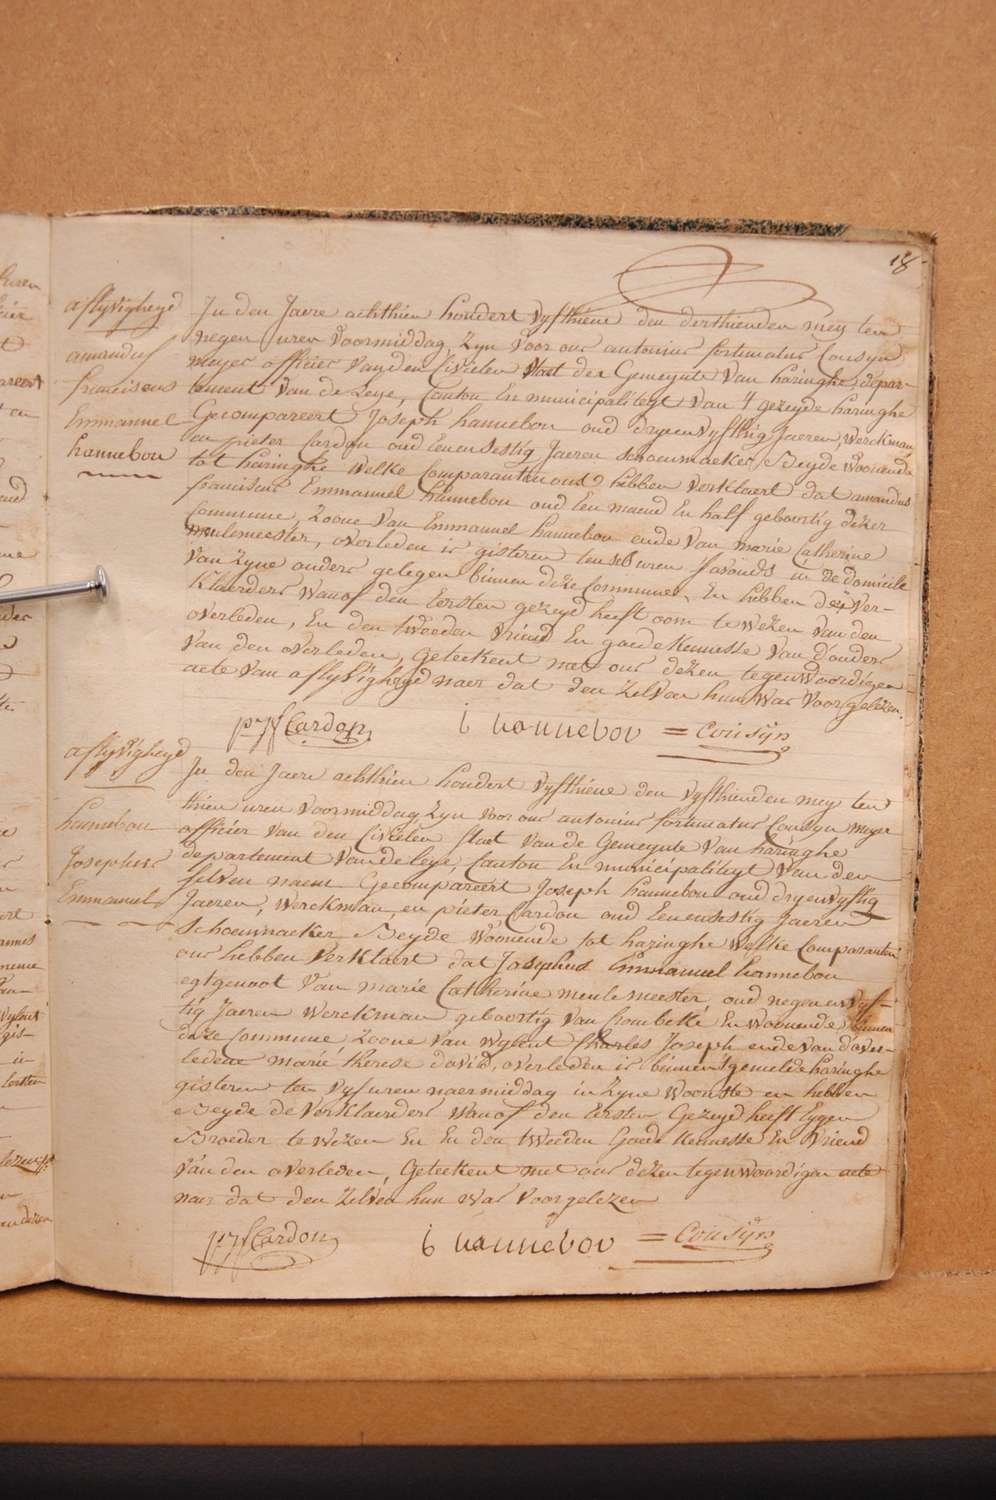 18
aflyvigheyd
amandus
franciscus
Emmanuel
hannebou
In den Jaere achthien hondert vyfthiene den derthienden mey ten
negen uren voormiddag, Zyn voor ons antonius fortunatus Cousyn
meyer officier van den Civielen Staet der Gemeynte van haringhe, depar-
tement van de Leye, Canton En municipaliteyt van 't gezeyde haringhe
Gecompareert Joseph hannebou oud dryenvyftig Jaeren, werckman,
en pieter Cardon oud Eenensestig Jaeren schoenmaeker Beyde woonende
tot haringhe welke Comparanten ons hebben verklaert dat amandus
franciscus Emmanuel hannebou oud Een maend En half geboortig dezer
Commune, Zoone van Emmanuel hannebou ende van marie Catherine
meulemeester, overleden is gisteren ten ses uren s'avonds in de domicile
van Zyne ouders gelegen binnen deze Commune, En hebben dese ver-
klaerders wan of den Eersten gezeyd heeft oom te wezen van den
overleden, En den tweeden vriend En goede Kennesse van d'ouders
van den overleden, Geteekent met ons dezen tegenwoordigen
acte van aflyvigheyd naer dat den zelven hun was voorgelezen.
p j f Cardon   i hannebou = Cousyn
aflyvigheyd
hannebou
Josephus
Emmanuel
In den Jaere achthien hondert vyfthiene den vyfthienden mey ten
thien uren voormiddag, Zyn voor ons antonius fortunatus Cousyn meyer
officier van den Civielen staet van de Gemeynte van haringhe
departement van de leye, Canton En municipaliteyt van den
zelven naem Gecompareert Joseph hannebou oud dryenvyftig
Jaeren, werckman, en pieter Cardon oud Eenensestig Jaeren
schoenmaeker Beyde woonende tot haringhe welke Comparanten
ons hebben verklaert dat Josephus Emmanuel hannebou
egtgenoot van marie Catherine meulemeester, oud negenenvyf-
tig Jaeren werckman geboortig van Crombeke En woonende binnen
deze Commune Zoone van wylent Charles Joseph ende van d'over-
ledene marie therese david, overleden is binnen 't gemelde haringhe
gisteren ten vyf uren naermiddag in Zyne woonste en hebben
Beyde de verklaerders wan of den Eersten Gezeyd heeft Eygen
Broeder te wezen En En den tweeden Goede Kennesse En vriend
van den overleden, Geteekent met ons dezen tegenwoordigen acte
naer dat den zelven hun was voorgelezen
p j f Cardon   i hannebou = Cousyn